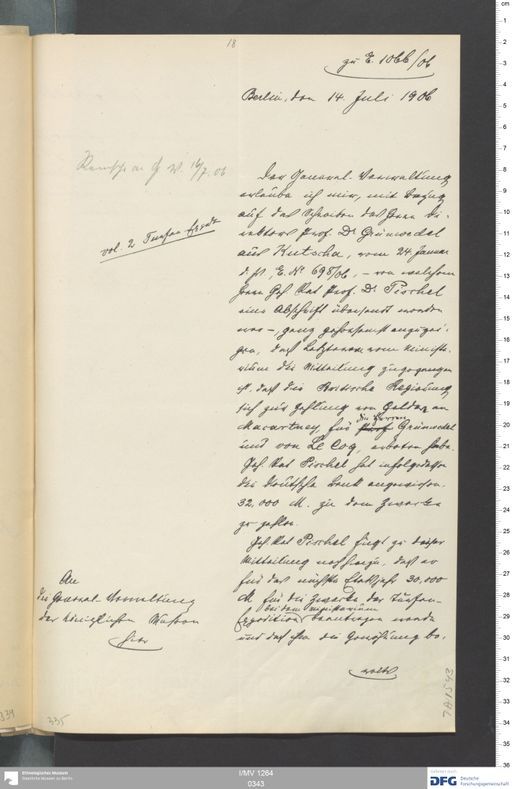 18
zu E. 1066/06
Berlin, den 14 Juli 1906
16/7. 06
vol. 2 Turfan
Der General-Verwaltung
erlaube ich mir, mit Bezug
auf das Schreiben des Herrn Di-
rektors Prof. Dr. Grünwedel
aus Kutscha, vom 24 Januar
d. Js, E. No 698/06, – von welchem
Herrn Geh. Rat Prof. Dr. Pischel
eine Abschrift übersandt worden
war –, ganz gehorsamst anzuzei-
gen, daß Letzterem vom Ministe-
rium die Mitteilung zugegangen
ist, daß die Britische Regierung
sich zur Zahlung von Geldern an
Macartney, für die Herren Grünwedel
und von Le Coq, erboten habe.
Geh. Rat Pischel hat infolgedessen
die Deutsche Bank angewiesen
32,000 M. zu dem Zwecke
zu zahlen.
Geh. Rat Pischel fügt zu dieser
Mitteilung noch hinzu, daß er
für das nächste Etatsjahr 30,000
M. für die Zwecke der Turfan-
Expedition bei dem Ministerium beantragen werde
und daß ihm die Genehmigung be-
An
die General-Verwaltung
der Königlichen Museen
hier
335
I/MV 1264
0343
Ethnologisches Museum
Staatliche Museen zu Berlin
DFG Deutsche
Forschungsgemeinschaft
cm
1
2
3
4
5
6
7
8
9
10
11
12
13
14
15
16
17
18
19
20
21
22
23
24
25
26
27
28
29
30
31
32
33
34
35
36